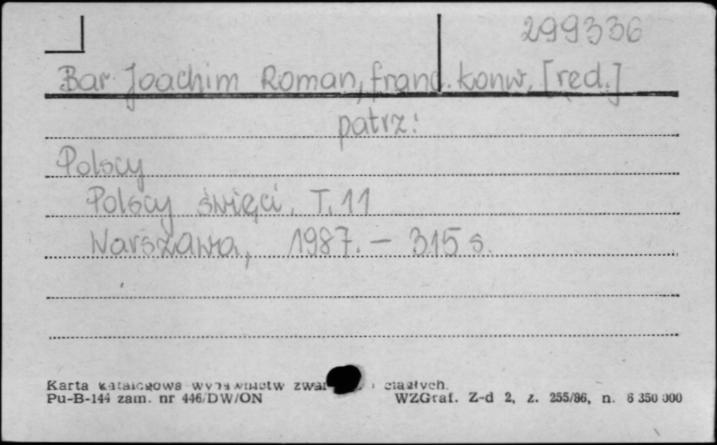 299336
Bar Joachim Roman, franc. konw. [red.]
patrz:
Polscy
Polscy święci. T. 11
Warszawa, 1987. – 315 s.
Karta katalogowa wydawnictw zwar ciągłych.
Pu-B-144 zam. nr 446/DW/ON WZGraf. Z-d 2, z. 255/86, n. 6 350 000